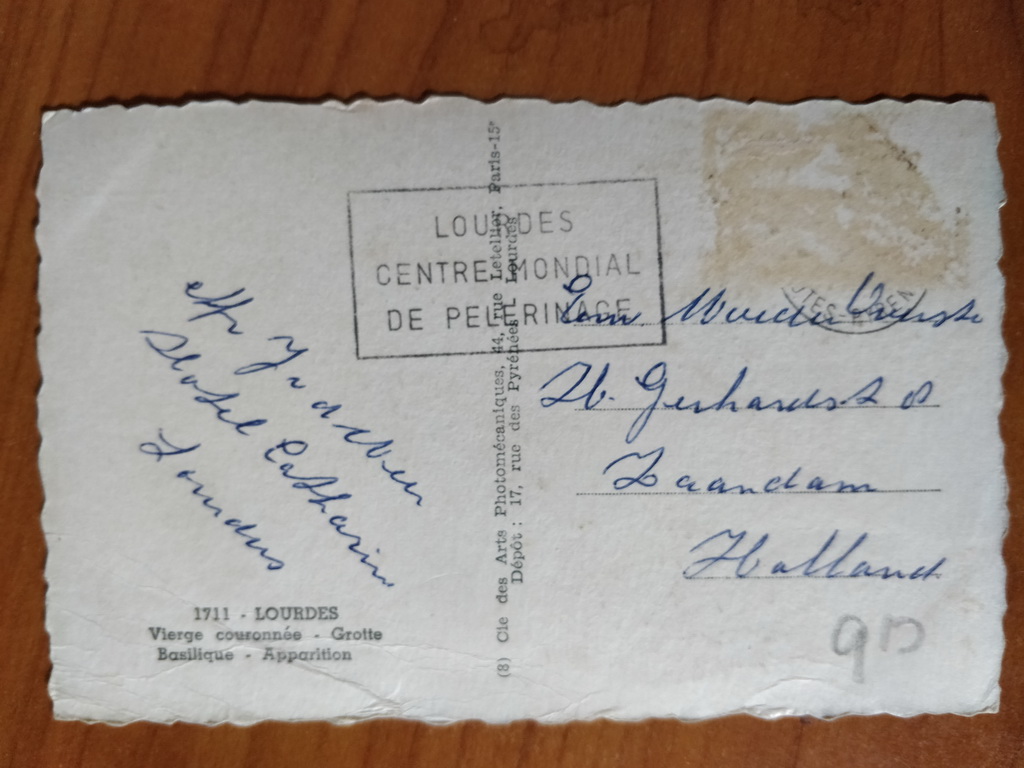 LOURDES
CENTRE MONDIAL
DE PELERINAGE
Hotel Catharin
Lourdes
1711 - LOURDES
Vierge couronnée - Grotte
Basilique - Apparition
(8) Cie des Arts Photomécaniques, 44, rue Letellier, Paris-15e
Dépôt : 17, rue des Pyrénées Lourdes
Fam.
H. Gerhardst 8
Zaandam
Holland